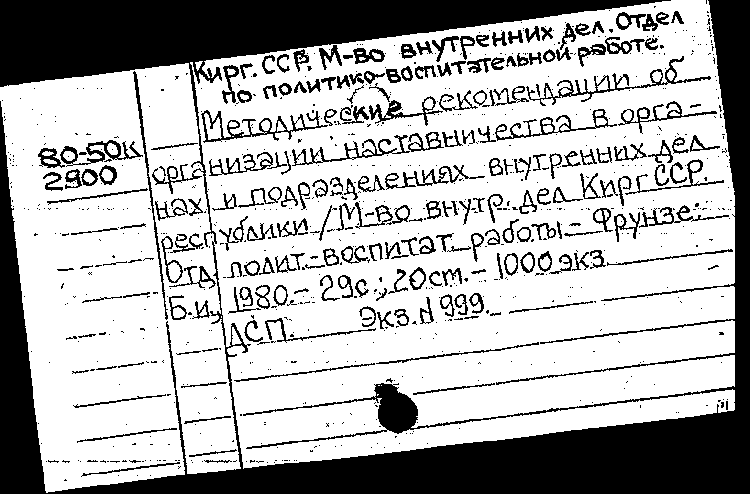 Кирг. ССР. М-во внутренних дел. Отдел
по политико-воспитательной работе.
Методические рекомендации об
80-50К
2900
организации наставничества в орга-
нах и подразделениях внутренних дел
республики /М-во внутр. дел Кирг ССР.
Отд. полит.-воспитат. работы.- Фрунзе:
Б.и., 1980.- 29с.; 20см.- 1000 экз.
ДСП. Экз.N 999.